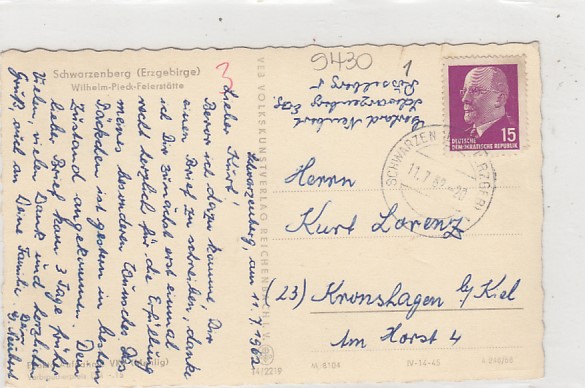 9430
1
Schwarzenberg (Erzgebirge)
Wilhelm-Pieck-Feierstätte
Schwarzenberg, am 11.7.1962
Lieber Kurt!
Bevor ich dazu komme, Dir
einen Brief zu schreiben, danke
ich Dir zunächst erst einmal
recht herzlich für die Erfüllung
meines besonderen Wunsches. Das
Päckchen ist gestern in bestem
Zustand angekommen. Dein
lieber Brief kam 3 Tage früher.
Vielen, vielen Dank und herzlichen
Gruß, auch an Deine Familie
Neubert
VEB VOLKSKUNSTVERLAG REICHENBACH
14/2219
Neubert
Schwarzenberg
DEUTSCHE
DEMOKRATISCHE REPUBLIK
15
SCHWARZENBERG (ERZGEB)
11.7.62-20
Herrn
Kurt Lorenz
(23) Kronshagen b/Kiel
Am Horst 4
M 8104
IV-14-45